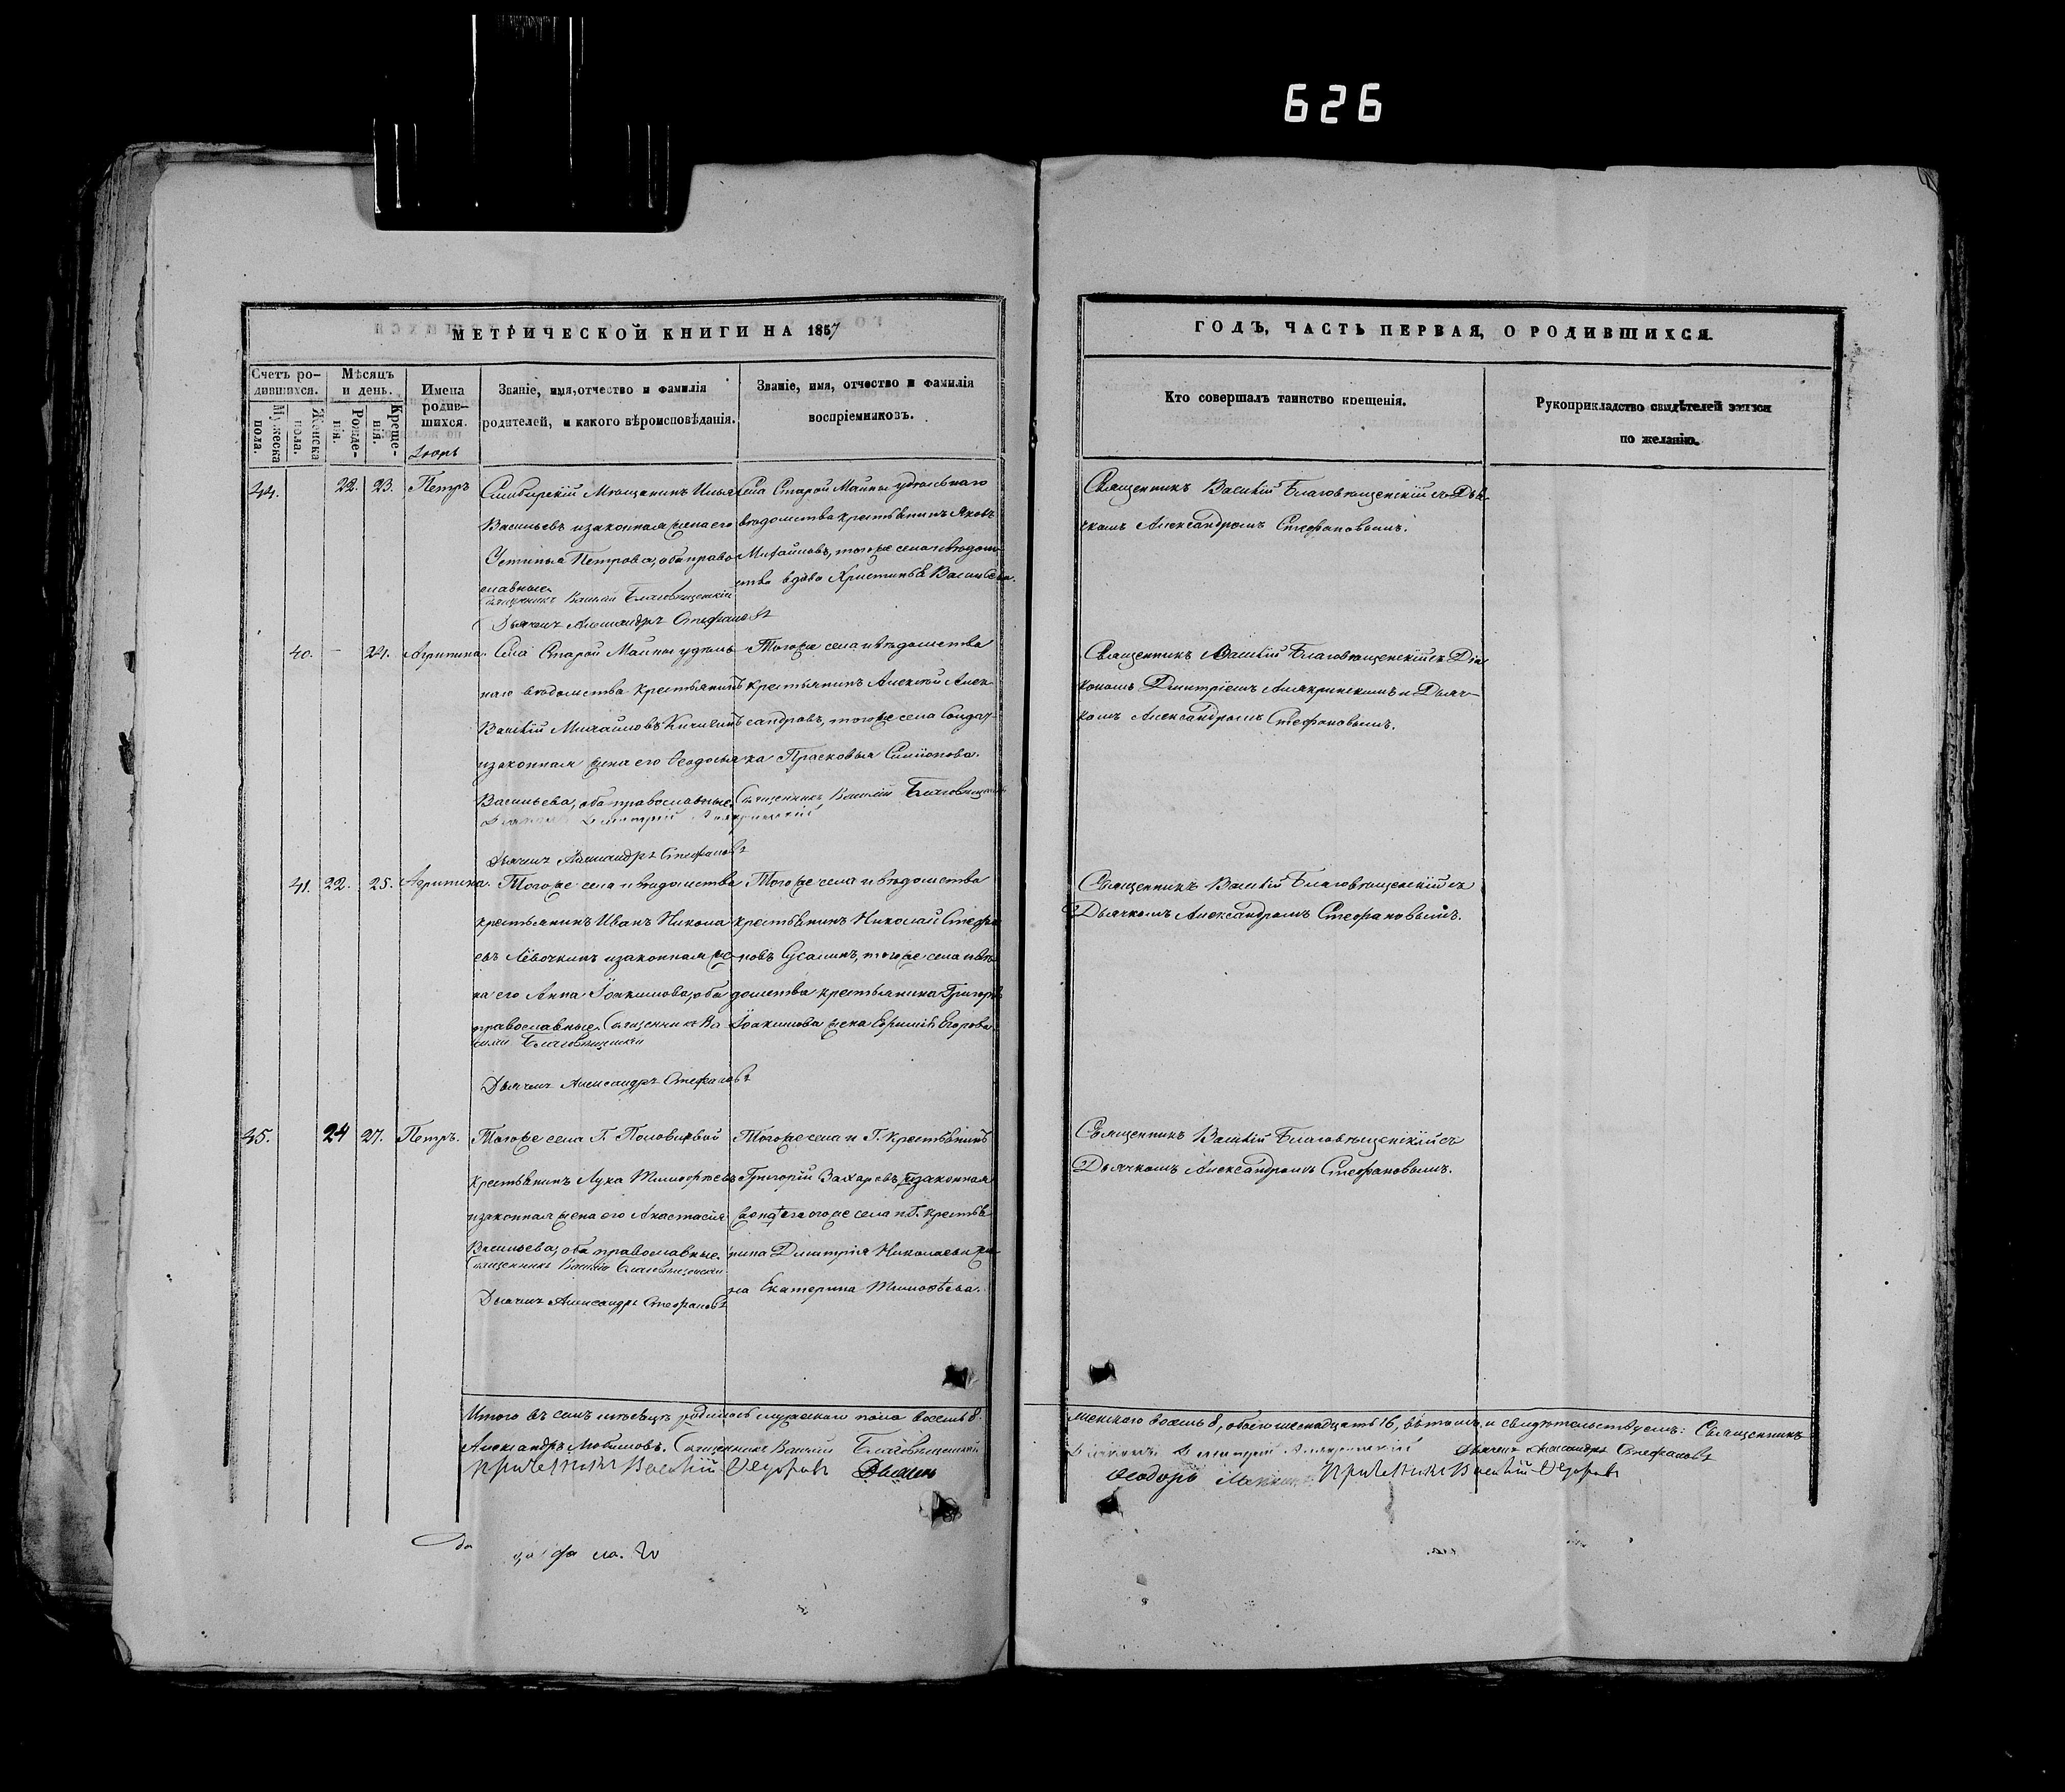 626
МЕТРИЧЕСКОЙ КНИГИ НА 1857
Счетъ ро-
дившихся.
Мужеска
пола.
Женска
пола.
Мѣсяцъ
и день.
Рожде-
нія.
Креще-
нія.
Имена
родив-
шихся.
Званіе, имя, отчество и фамилія
родителей, и какого вѣроисповѣданія.
Званіе, имя, отчество и фамилія
воспріемниковъ.
44. 22. 23. Петръ
Симбирскій Мѣщанинъ Илья
Васильевъ и законная жена его
Устинья Петрова, оба право-
славные.
Священникъ Василій Благовѣщенскій
Дьячекъ Александръ Стефановъ
Села Старой Майны удѣльнаго
вѣдомства крестьянинъ Яковъ
Михайловъ, тогоже села и вѣдом-
ства вдова Христинья Васильева.
40. — 24. Агрипина.
Села Старой Майны удѣль-
наго вѣдомства крестьянинъ
Василій Михайловъ
и законная жена его Ѳеодосья
Васильева, оба православные.
Священникъ Василій Благовѣщенскій
Дьячекъ Александръ Стефановъ
Тогоже села и вѣдомства
крестьянинъ Алексей Алек-
сандровъ, тогоже села Солдат-
ка Прасковья Симіонова.
41. 22. 25. Агрипина.
Тогоже села и вѣдомства
крестьянинъ Иванъ Никола-
евъ Лёвочкинъ и законная же-
на его Анна Іоакимова, оба
православные. Священникъ Ва-
силій Благовѣщенскій
Дьячекъ Александръ Стефановъ
Тогоже села и вѣдомства
крестьянинъ Николай Стефа-
новъ Сусалинъ, тогоже села и вѣ-
домства крестьянина Григорія
Іоакимова жена Егорова.
45. 24 27. Петръ.
Тогоже села Г.
крестьянинъ Лука Тимоѳеевъ
и законная жена его Анастасія
Васильева, оба православные.
Священникъ Василій Благовѣщенскій
Дьячекъ Александръ Стефановъ
Тогоже села и Г. крестьянинъ
Григорій Захаровъ
села и Г. крестья-
нина Дмитрія Николаева же-
на Екатерина Тимоѳеева.
Итого въ семъ мѣсяцѣ родилось мужескаго пола восемь 8.
Александръ Любимовъ. Священникъ Василій Благовѣщенскій
Причетникъ Василій Ѳедоровъ
ГОДЪ, ЧАСТЬ ПЕРВАЯ, О РОДИВШИХСЯ.
Кто совершалъ таинство крещенія.
Рукоприкладство свидѣтелей записи
по желанію.
Священникъ Василій Благовѣщенскій съ Дья-
чкомъ Александромъ Стефановымъ.
Священникъ Василій Благовѣщенскій съ Діа-
кономъ Дмитріемъ Алякринскимъ и Дьяч-
комъ Александромъ Стефановымъ.
Священникъ Василій Благовѣщенскій съ
Дьячкомъ Александромъ Стефановымъ.
Священникъ Василій Благовѣщенскій съ
Дьячкомъ Александромъ Стефановымъ.
женскаго восемь 8, обоего шестнадцать 16, въ томъ и свидѣтельствуемъ: Священникъ
Дьячекъ Александръ Стефановъ
Ѳеодоръ Причетникъ Василій Ѳедоровъ